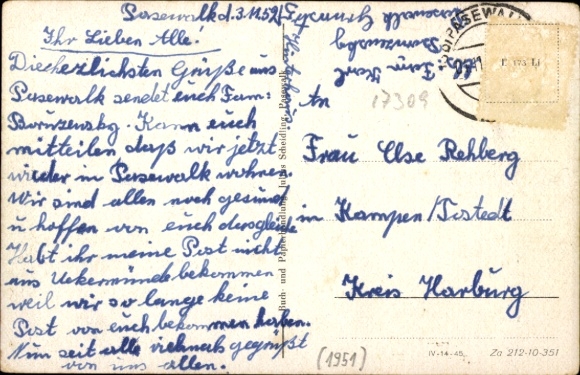 Pasewalk d. 3.11.52
Ihr Lieben Alle!
Die herzlichsten Grüße aus
Pasewalk sendet euch Fam:
Bonzensby. Kann euch
mitteilen daß wir jetzt
wieder in Pasewalk wohnen.
Wir sind allen noch gesund
u hoffen von euch dasgleiche
Habt ihr meine Post nicht
aus Uekermünde bekommen
weil wir so lange keine
Post von euch bekommen haben.
Nun seit alle vielmals gegrüßt
von uns allen.
Fam Karl
Pasewalk
PASEWALK
E 173 Li
17309
An
Frau Else Rehberg
in Kampen/Tostedt
Kreis Harburg
Buch- und Papierhandlung Julius Scheidling, Pasewalk
(1951)
IV-14-45
Za 212-10-351